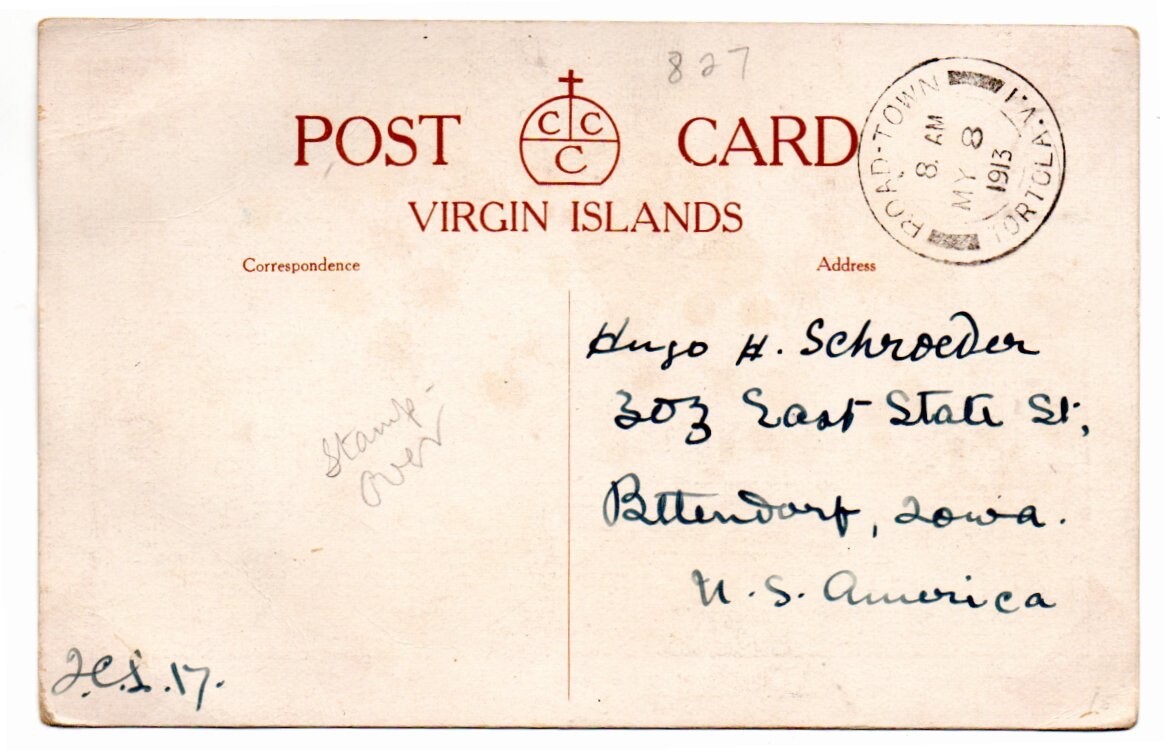 827
POST CCC CARD
VIRGIN ISLANDS
ROAD-TOWN
TORTOLA.V.I
8. AM
MY 8
1913
Correspondence
Address
Hugo H. Schroeder
303 East State St,
Bettendorf, Iowa.
U.S. America
Stamp-
over
I.C.S.17.